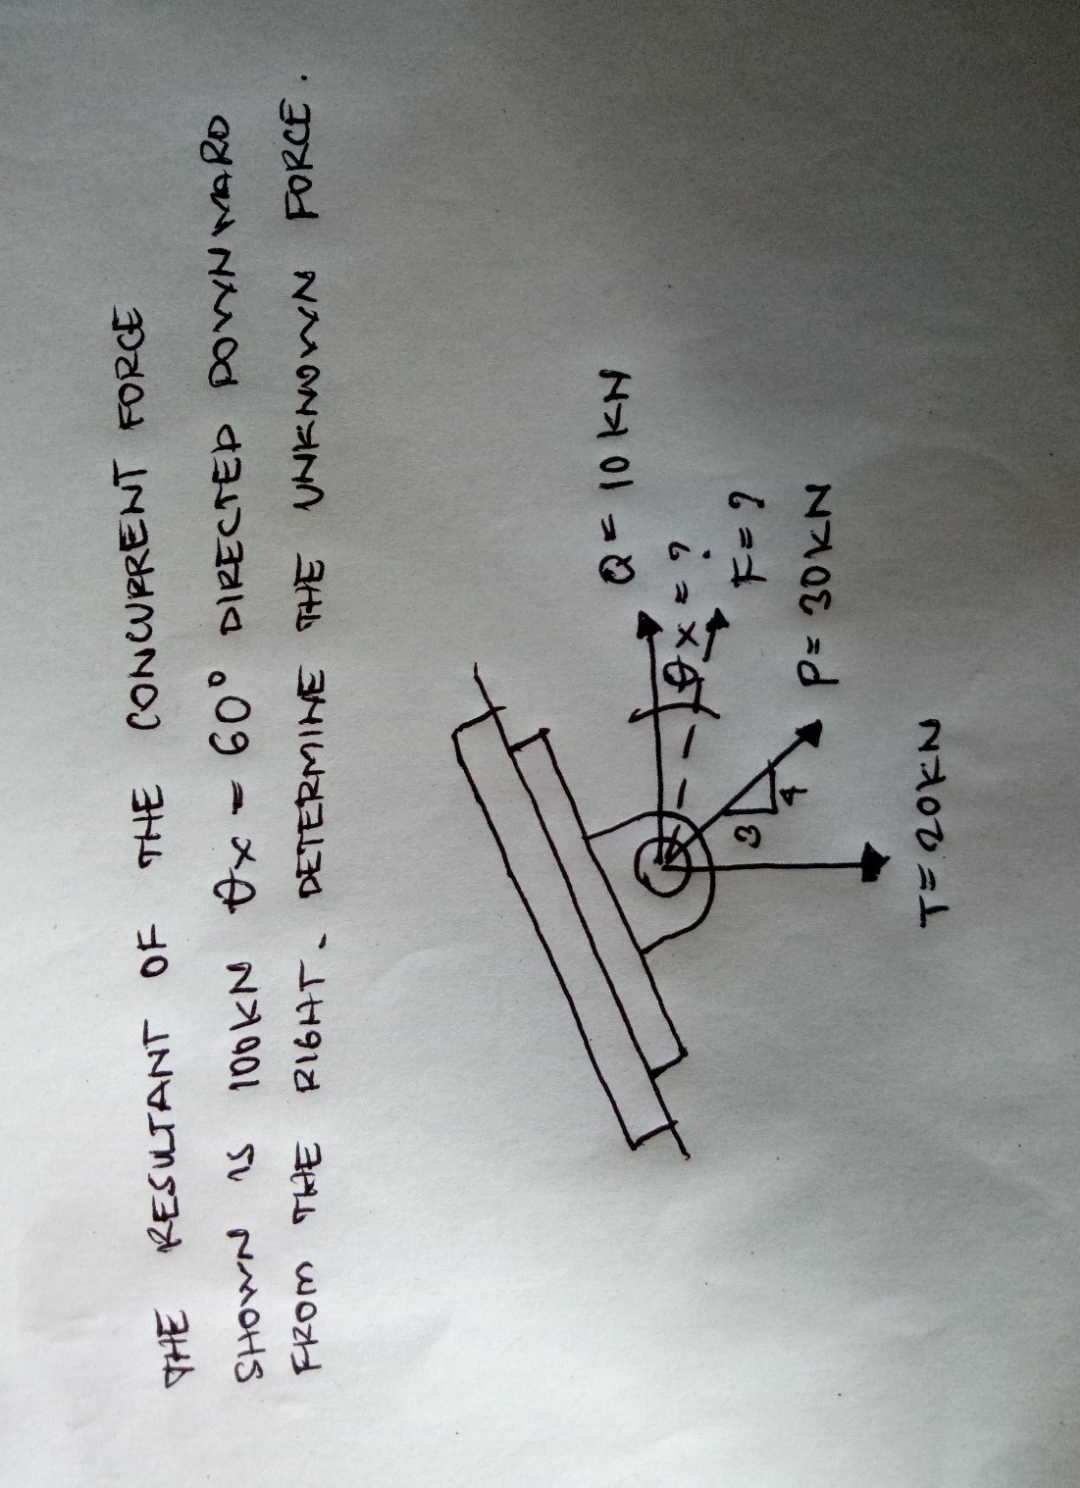 THE RESULTANT OF THE CONCURRENT FORCE
SHOWN IS 100KN θx = 60° DIRECTED DOWNWARD
FROM THE RIGHT. DETERMINE THE UNKNOWN FORCE.
Q = 10 KN
θx = ?
F = ?
3
4
P = 30KN
T = 20KN